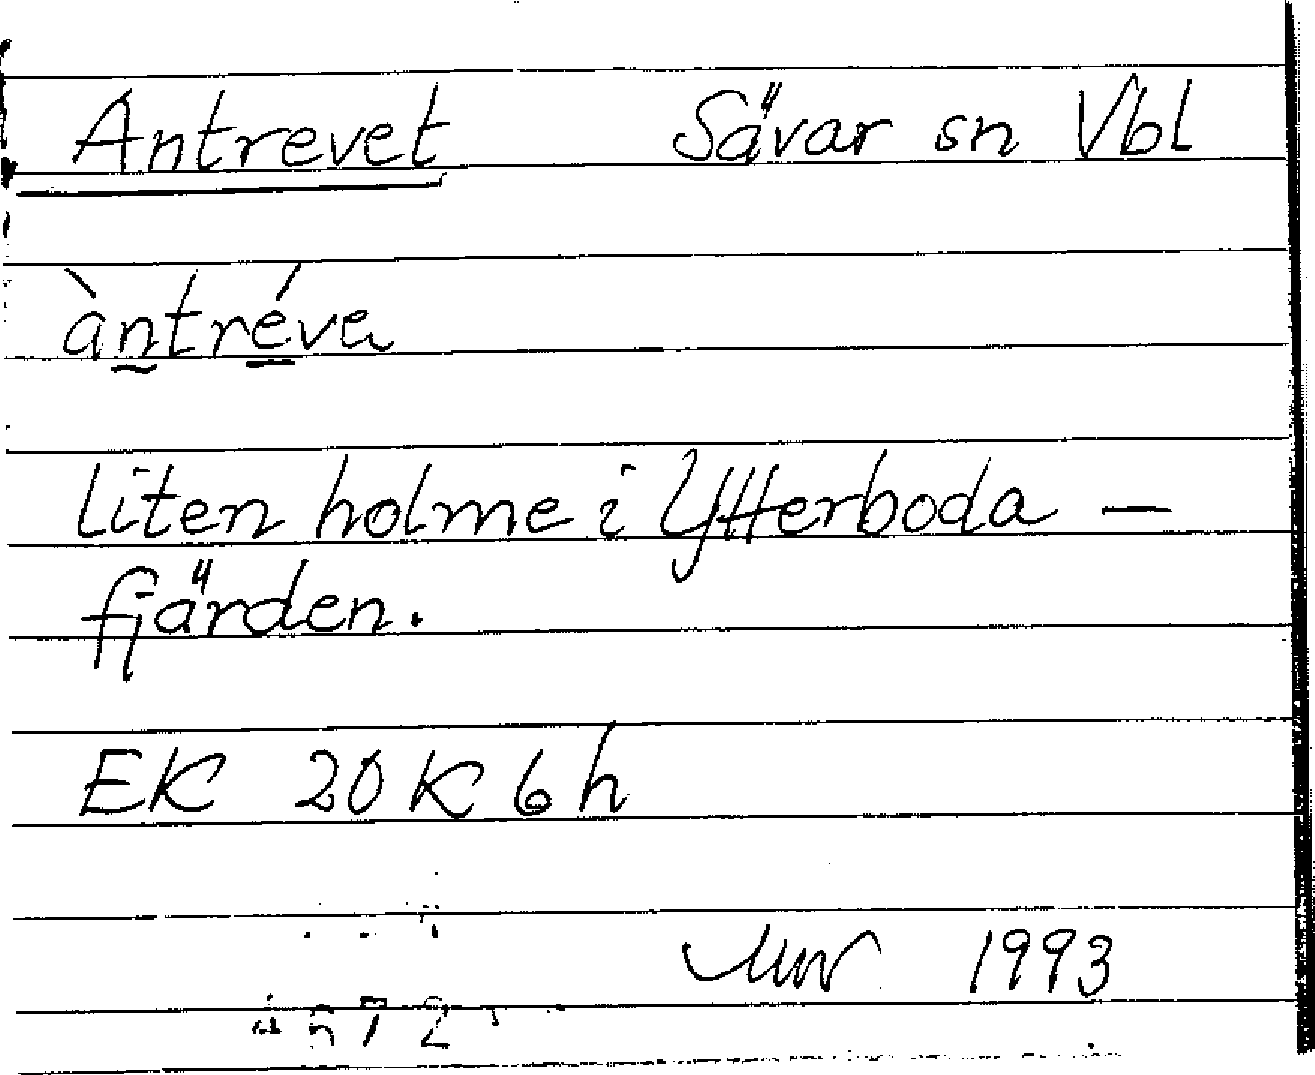 Antrevet Sävar sn Vbl
àntréva
liten holme i Ytterboda –
fjärden.
EK 20K 6h
1993